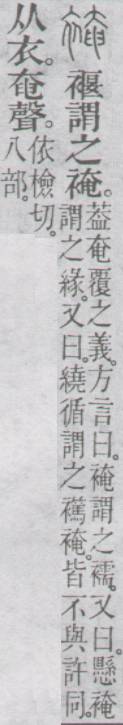 裺 褗謂之裺。
葢奄覆之義。方言曰。裺謂之襦。又曰。懸裺
謂之緣。又曰。繞循謂之裺。皆不與許同。
从衣。奄聲。
依檢切。
八部。